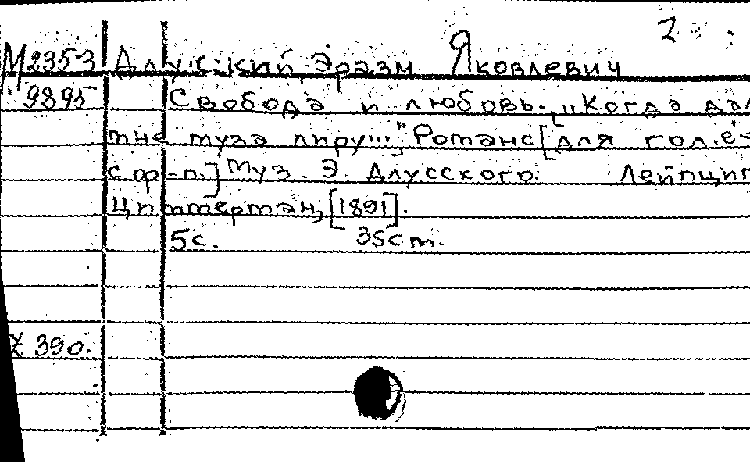 2
М2353 Длусский, Эразм Яковлевич
9895 Свобода и любовь. "Когда дал
мне муза лиру..." Романс [для гол. с
с ф-п.] Муз. Э. Длусского. Лейпциг
Циммерман, [1891].
5с. 35см.
Z 390.